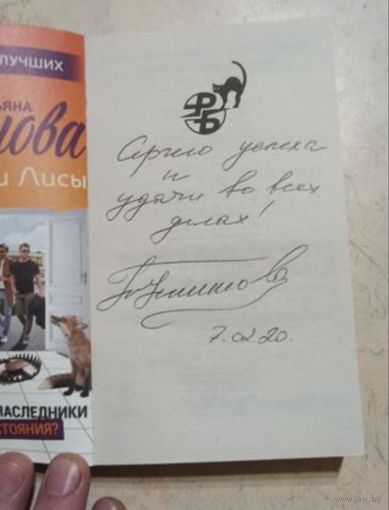 ЛУЧШИХ
ЬЯНА
НОВА
И Лисы
НАСЛЕДНИКИ
СТОЯНИЯ?
РБ
успеха
и
удачи во всех
делах!
7.02.20.
www.ay.by